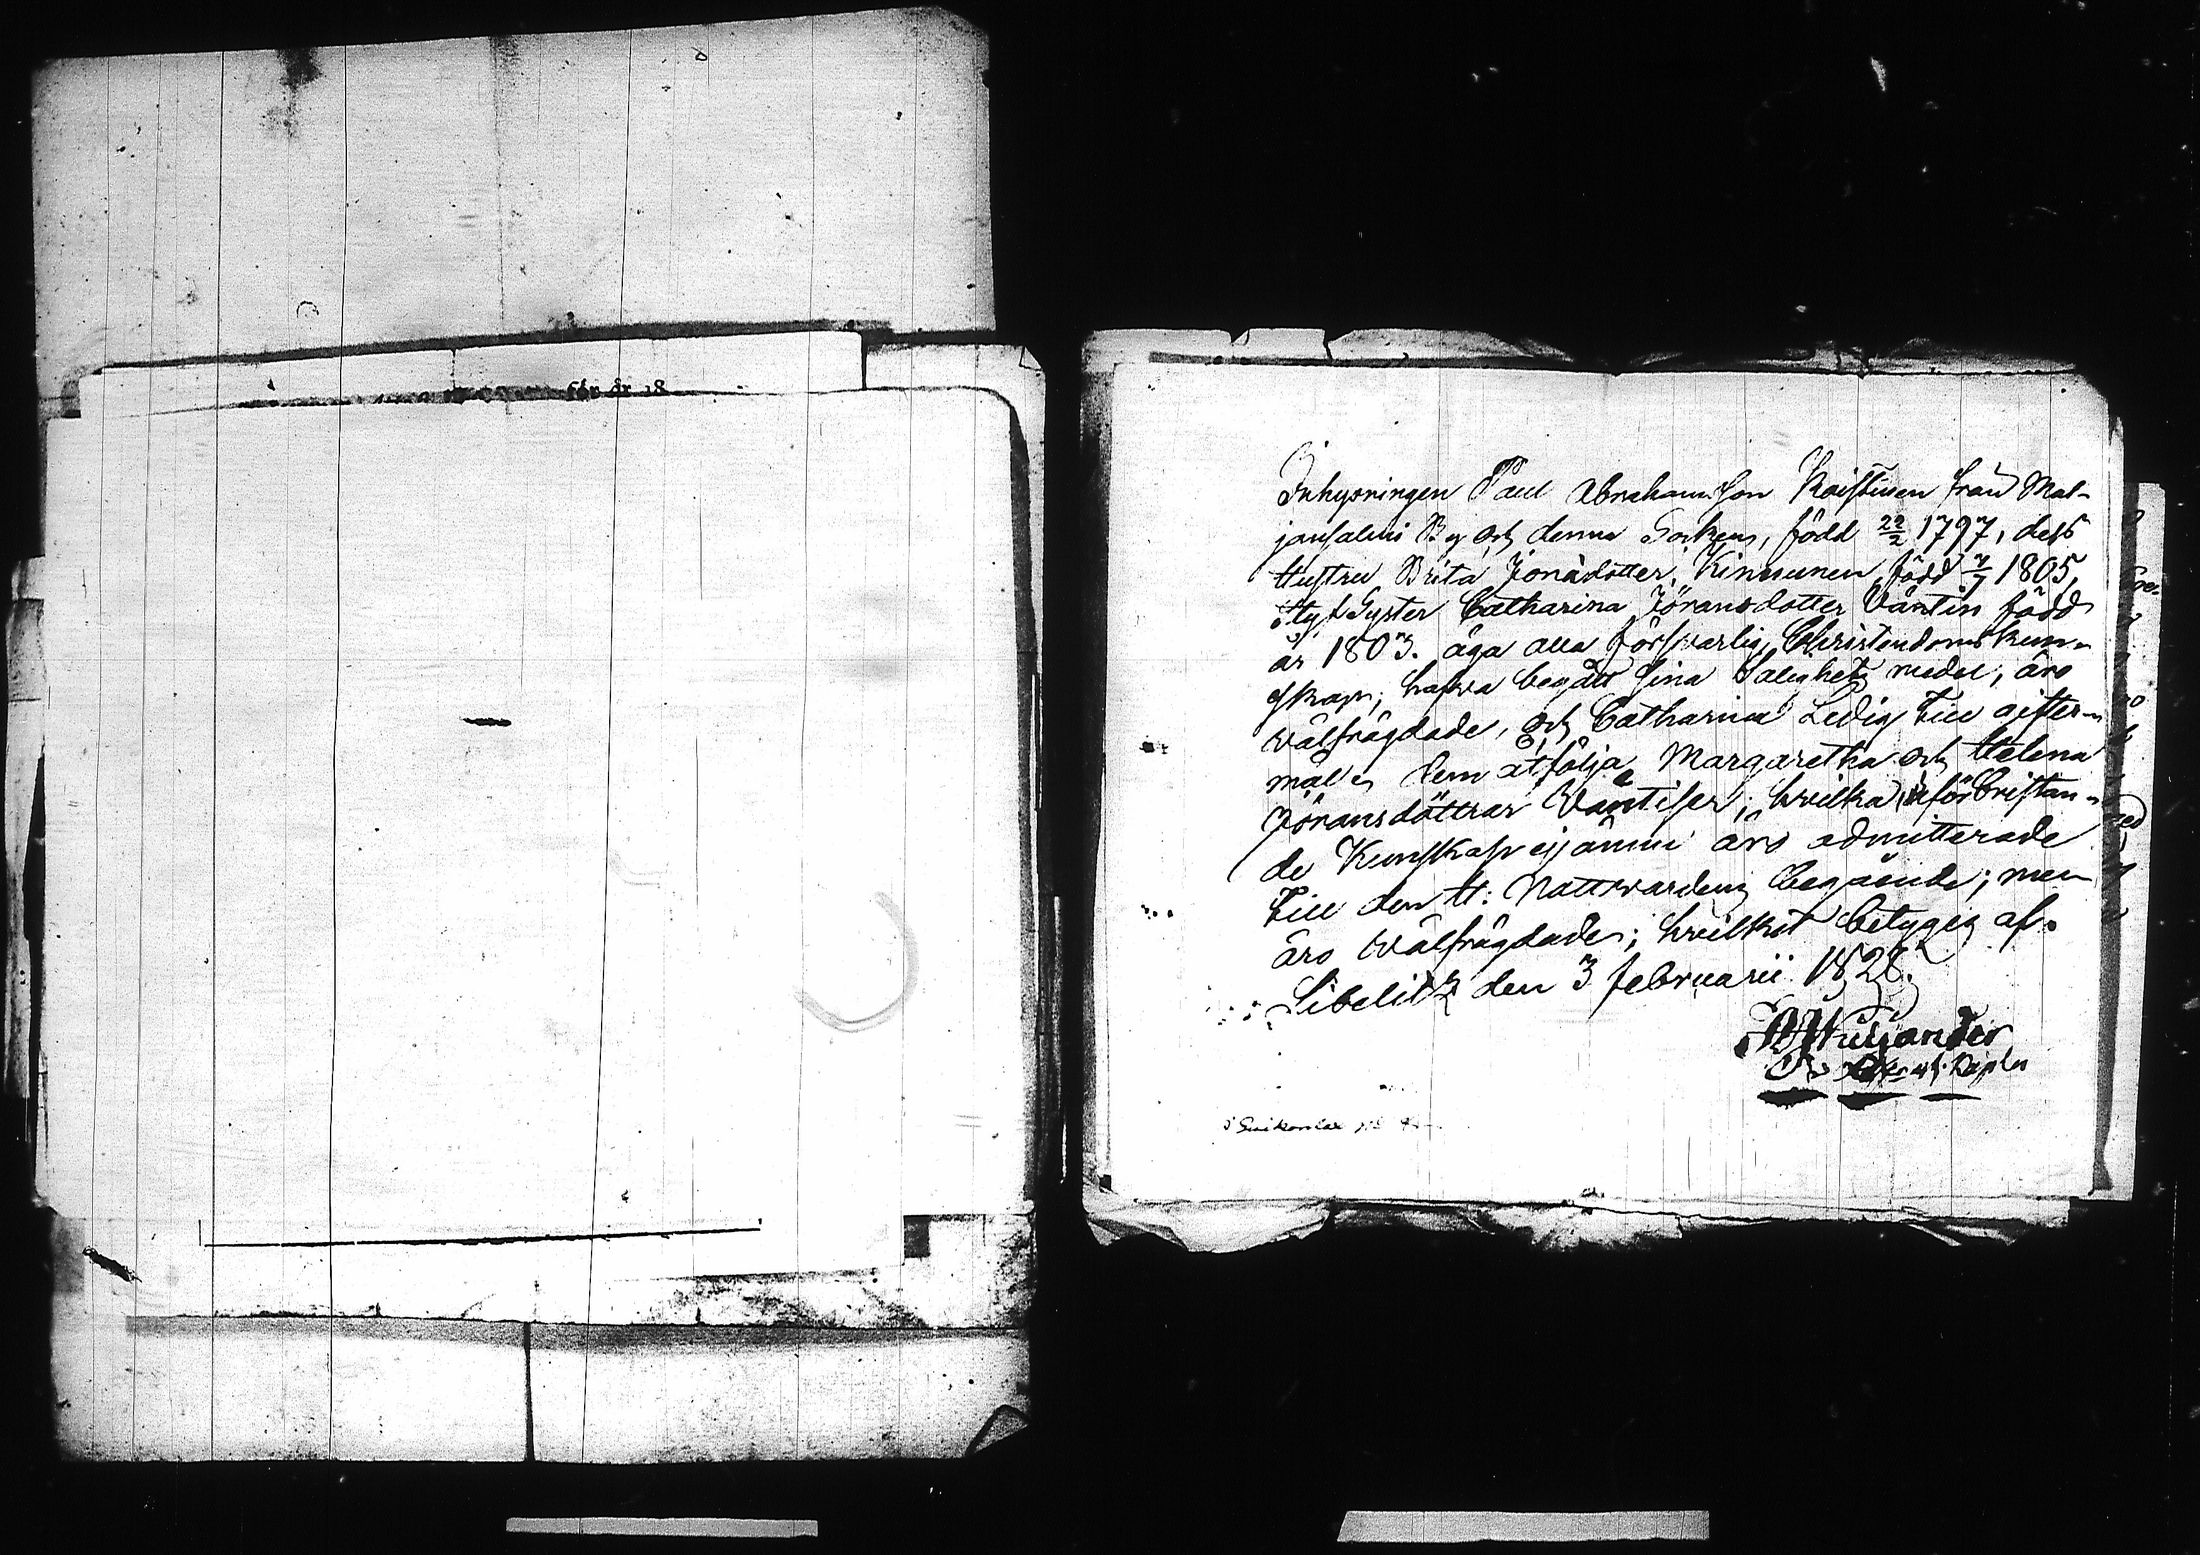 för år 18
Inhysningen Paul Abrahamsson Kaistinen från Mal-
jansalmi By och denna Sockens, född 22/2 1797, dess
Hustru Brita Jonädotter Kinnunen född 7/7 1805,
Styf Syster Catharina Jöransdotter Väntin född
år 1803. äga alla försvarlig Christendoms kun-
skap; hafva begått sina Salighets medel, äro
välfrägdade, och Catharina Ledig till gifter-
mål. Dem åtfölja Margaretha och Helena
Jöransdöttrar Väntiser, hvilka för bristan-
de Kunskap ej ännu äro admitterade
till den H: Nattvardens begående; men
äro välfrägdade; hvilket betygas af.
Libelitz den 3 februarii 1828.